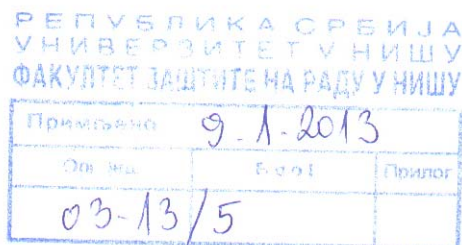 РЕПУБЛИКА СРБИЈА
УНИВЕРЗИТЕТ У НИШУ
ФАКУЛТЕТ ЗАШТИТЕ НА РАДУ У НИШУ
Примљено 9.1.2013
Орг. јед. Број Прилог
03-13/5